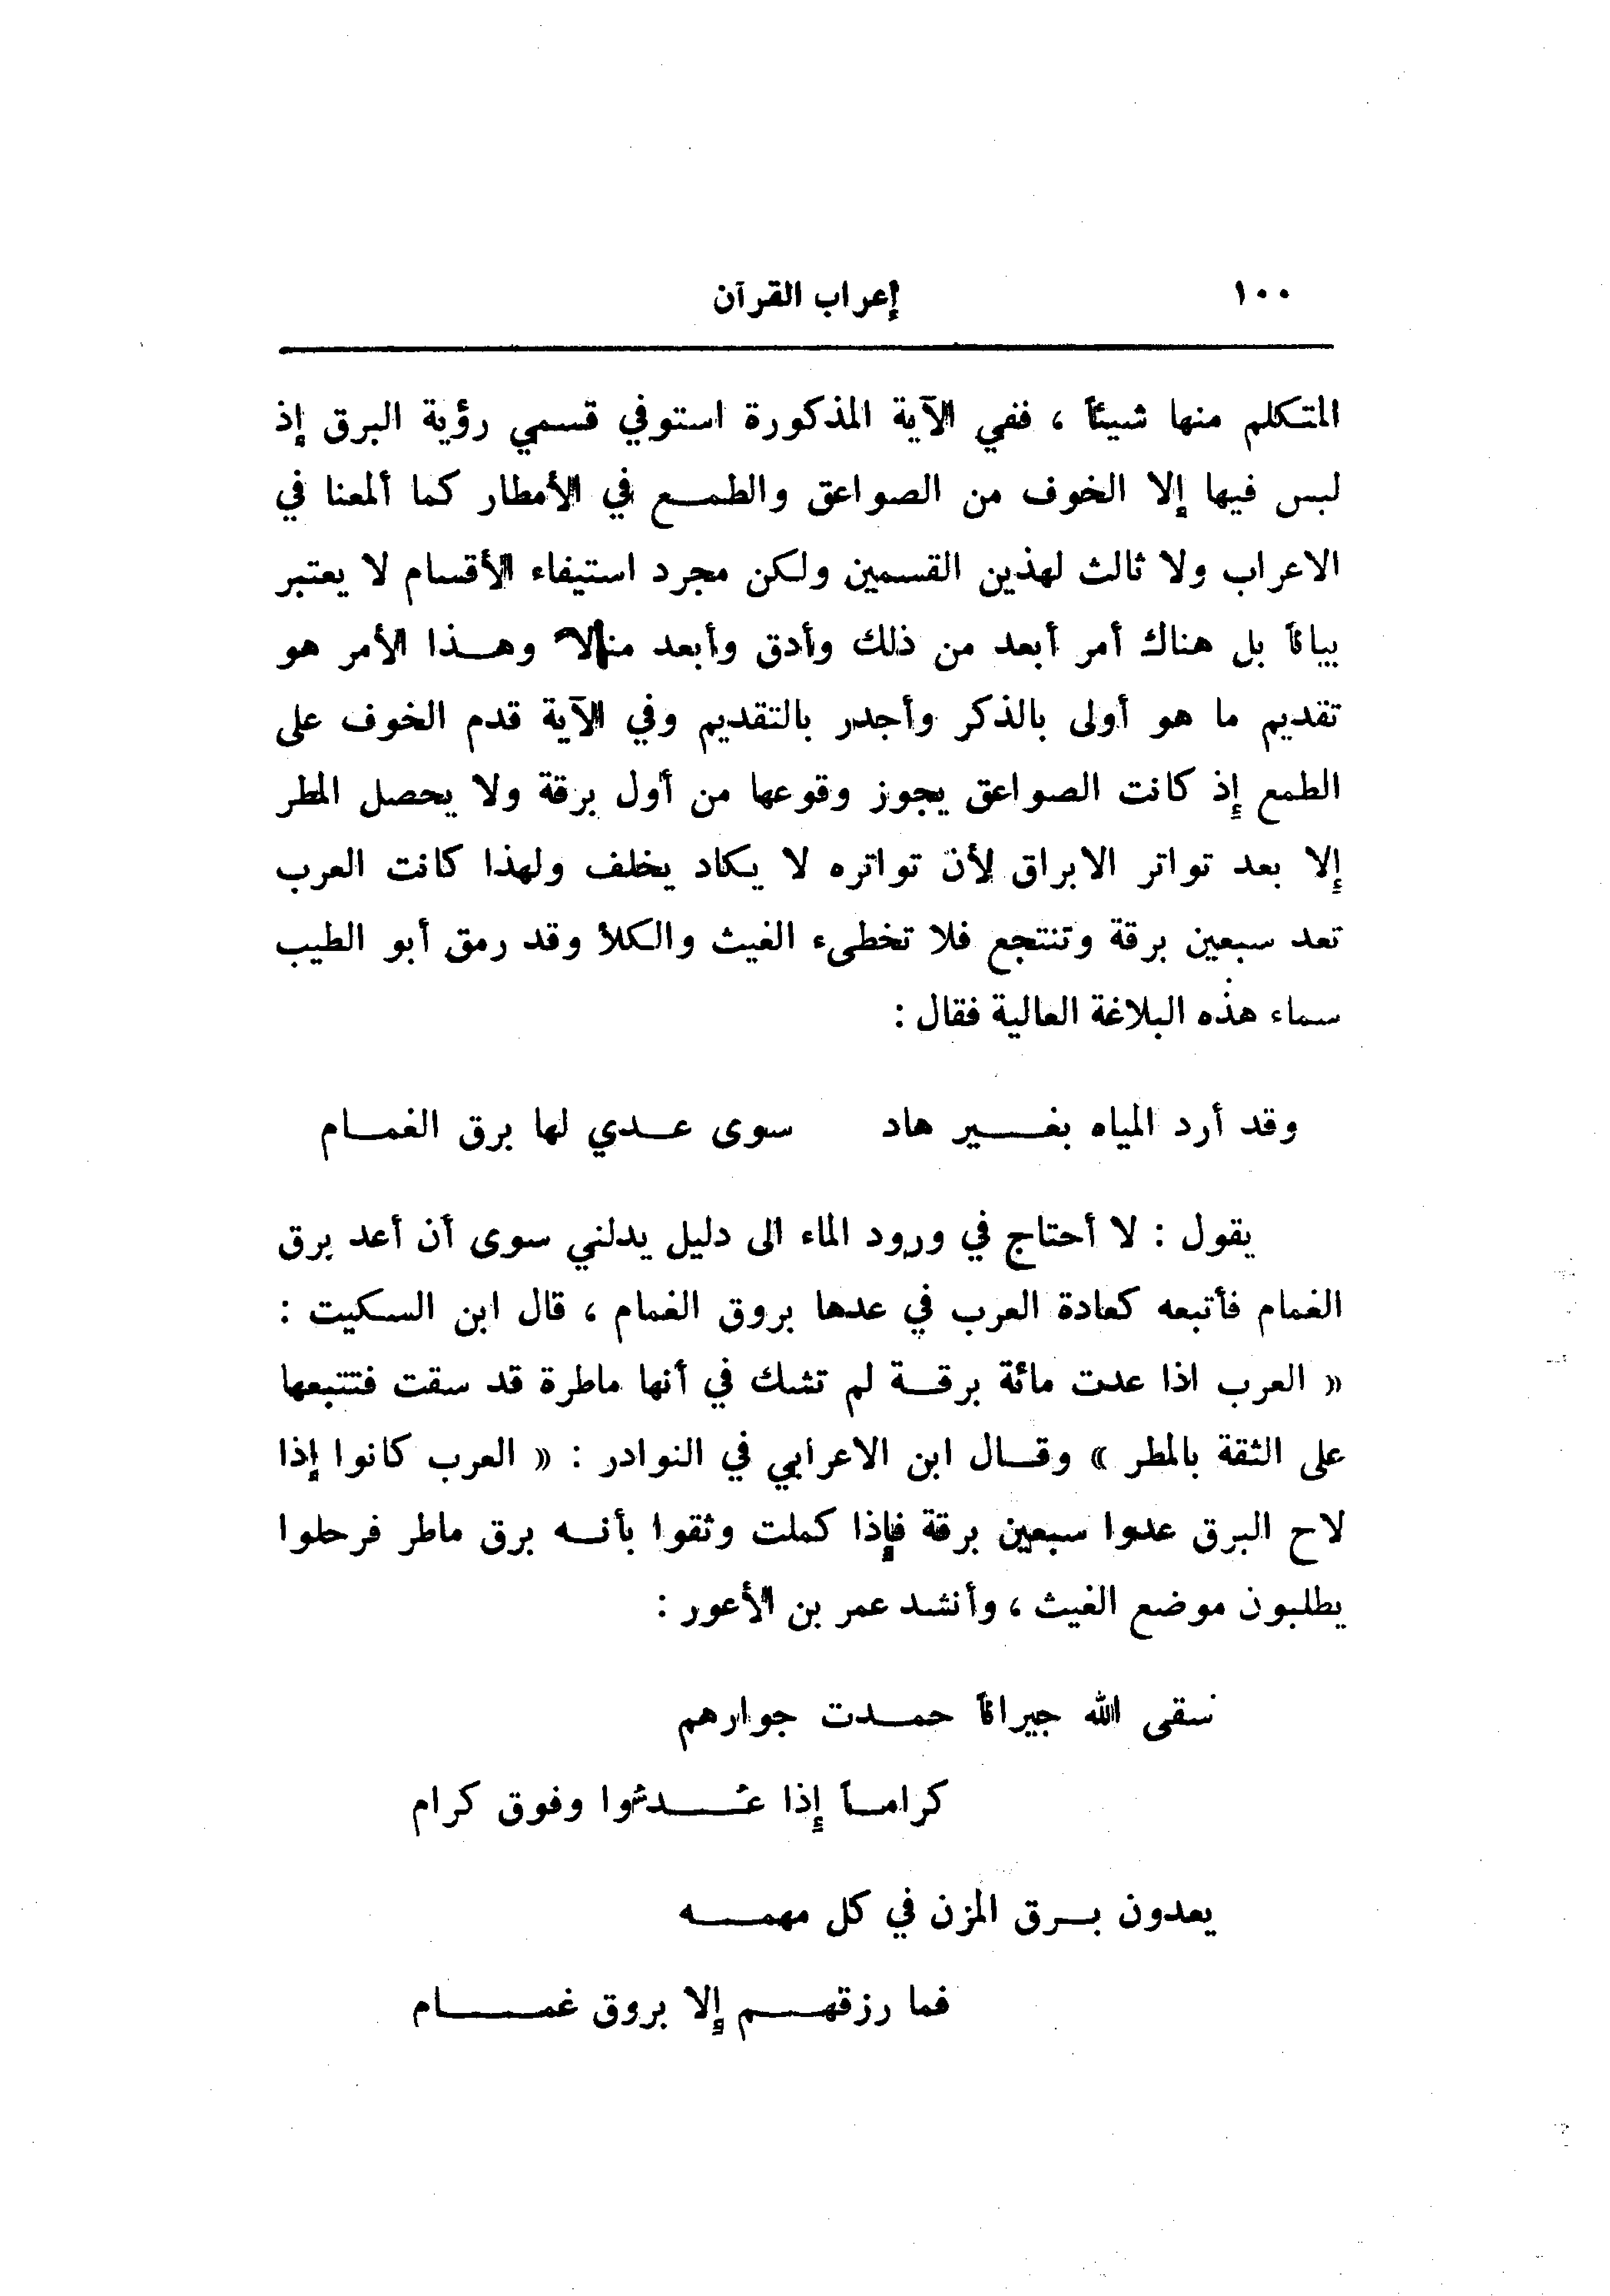 ١٠٠ إعراب القرآن
المتكلم منها شيئاً ، ففي الآية المذكورة استوفي قسمي رؤية البرق إذ
ليس فيها إلا الخوف من الصواعق والطمـع في الأمطار كما ألمعنا في
الاعراب ولا ثالث لهذين القسمين ولكن مجرد استيفاء الأقسام لا يعتبر
بياناً بل هناك أمر أبعد من ذلك وأدق وأبعد منالا وهـذا الأمر هو
تقديم ما هو أولى بالذكر وأجدر بالتقديم وفي الآية قدم الخوف على
الطمع إذ كانت الصواعق يجوز وقوعها من أول برقة ولا يحصل المطر
إلا بعد تواتر الابراق لأن تواتره لا يكاد يخلف ولهذا كانت العرب
تعد سبعين برقة وتنتجع فلا تخطىء الغيث والكلأ وقد رمق أبو الطيب
سماء هذه البلاغة العالية فقال :
وقد أرد المياه بغـير هاد سوى عـدي لها برق الغمـام
يقول : لا أحتاج في ورود الماء الى دليل يدلني سوى أن أعد برق
الغمام فأتبعه كعادة العرب في عدها بروق الغمام ، قال ابن السكيت :
« العرب اذا عدت مائة برقـة لم تشك في أنها ماطرة قد سقت فتتبعها
على الثقة بالمطر » وقـال ابن الاعرابي في النوادر : « العرب كانوا إذا
لاح البرق عدوا سبعين برقة فإذا كملت وثقوا بأنـه برق ماطر فرحلوا
يطلبون موضع الغيث ، وأنشد عمر بن الأعور :
سقى الله جيراناً حمـدت جوارهم
كرامـاً إذا عُـدثوا وفوق كرام
يعدون بـرق المزن في كل مهمـه
فما رزقهـم إلا بروق غمـام